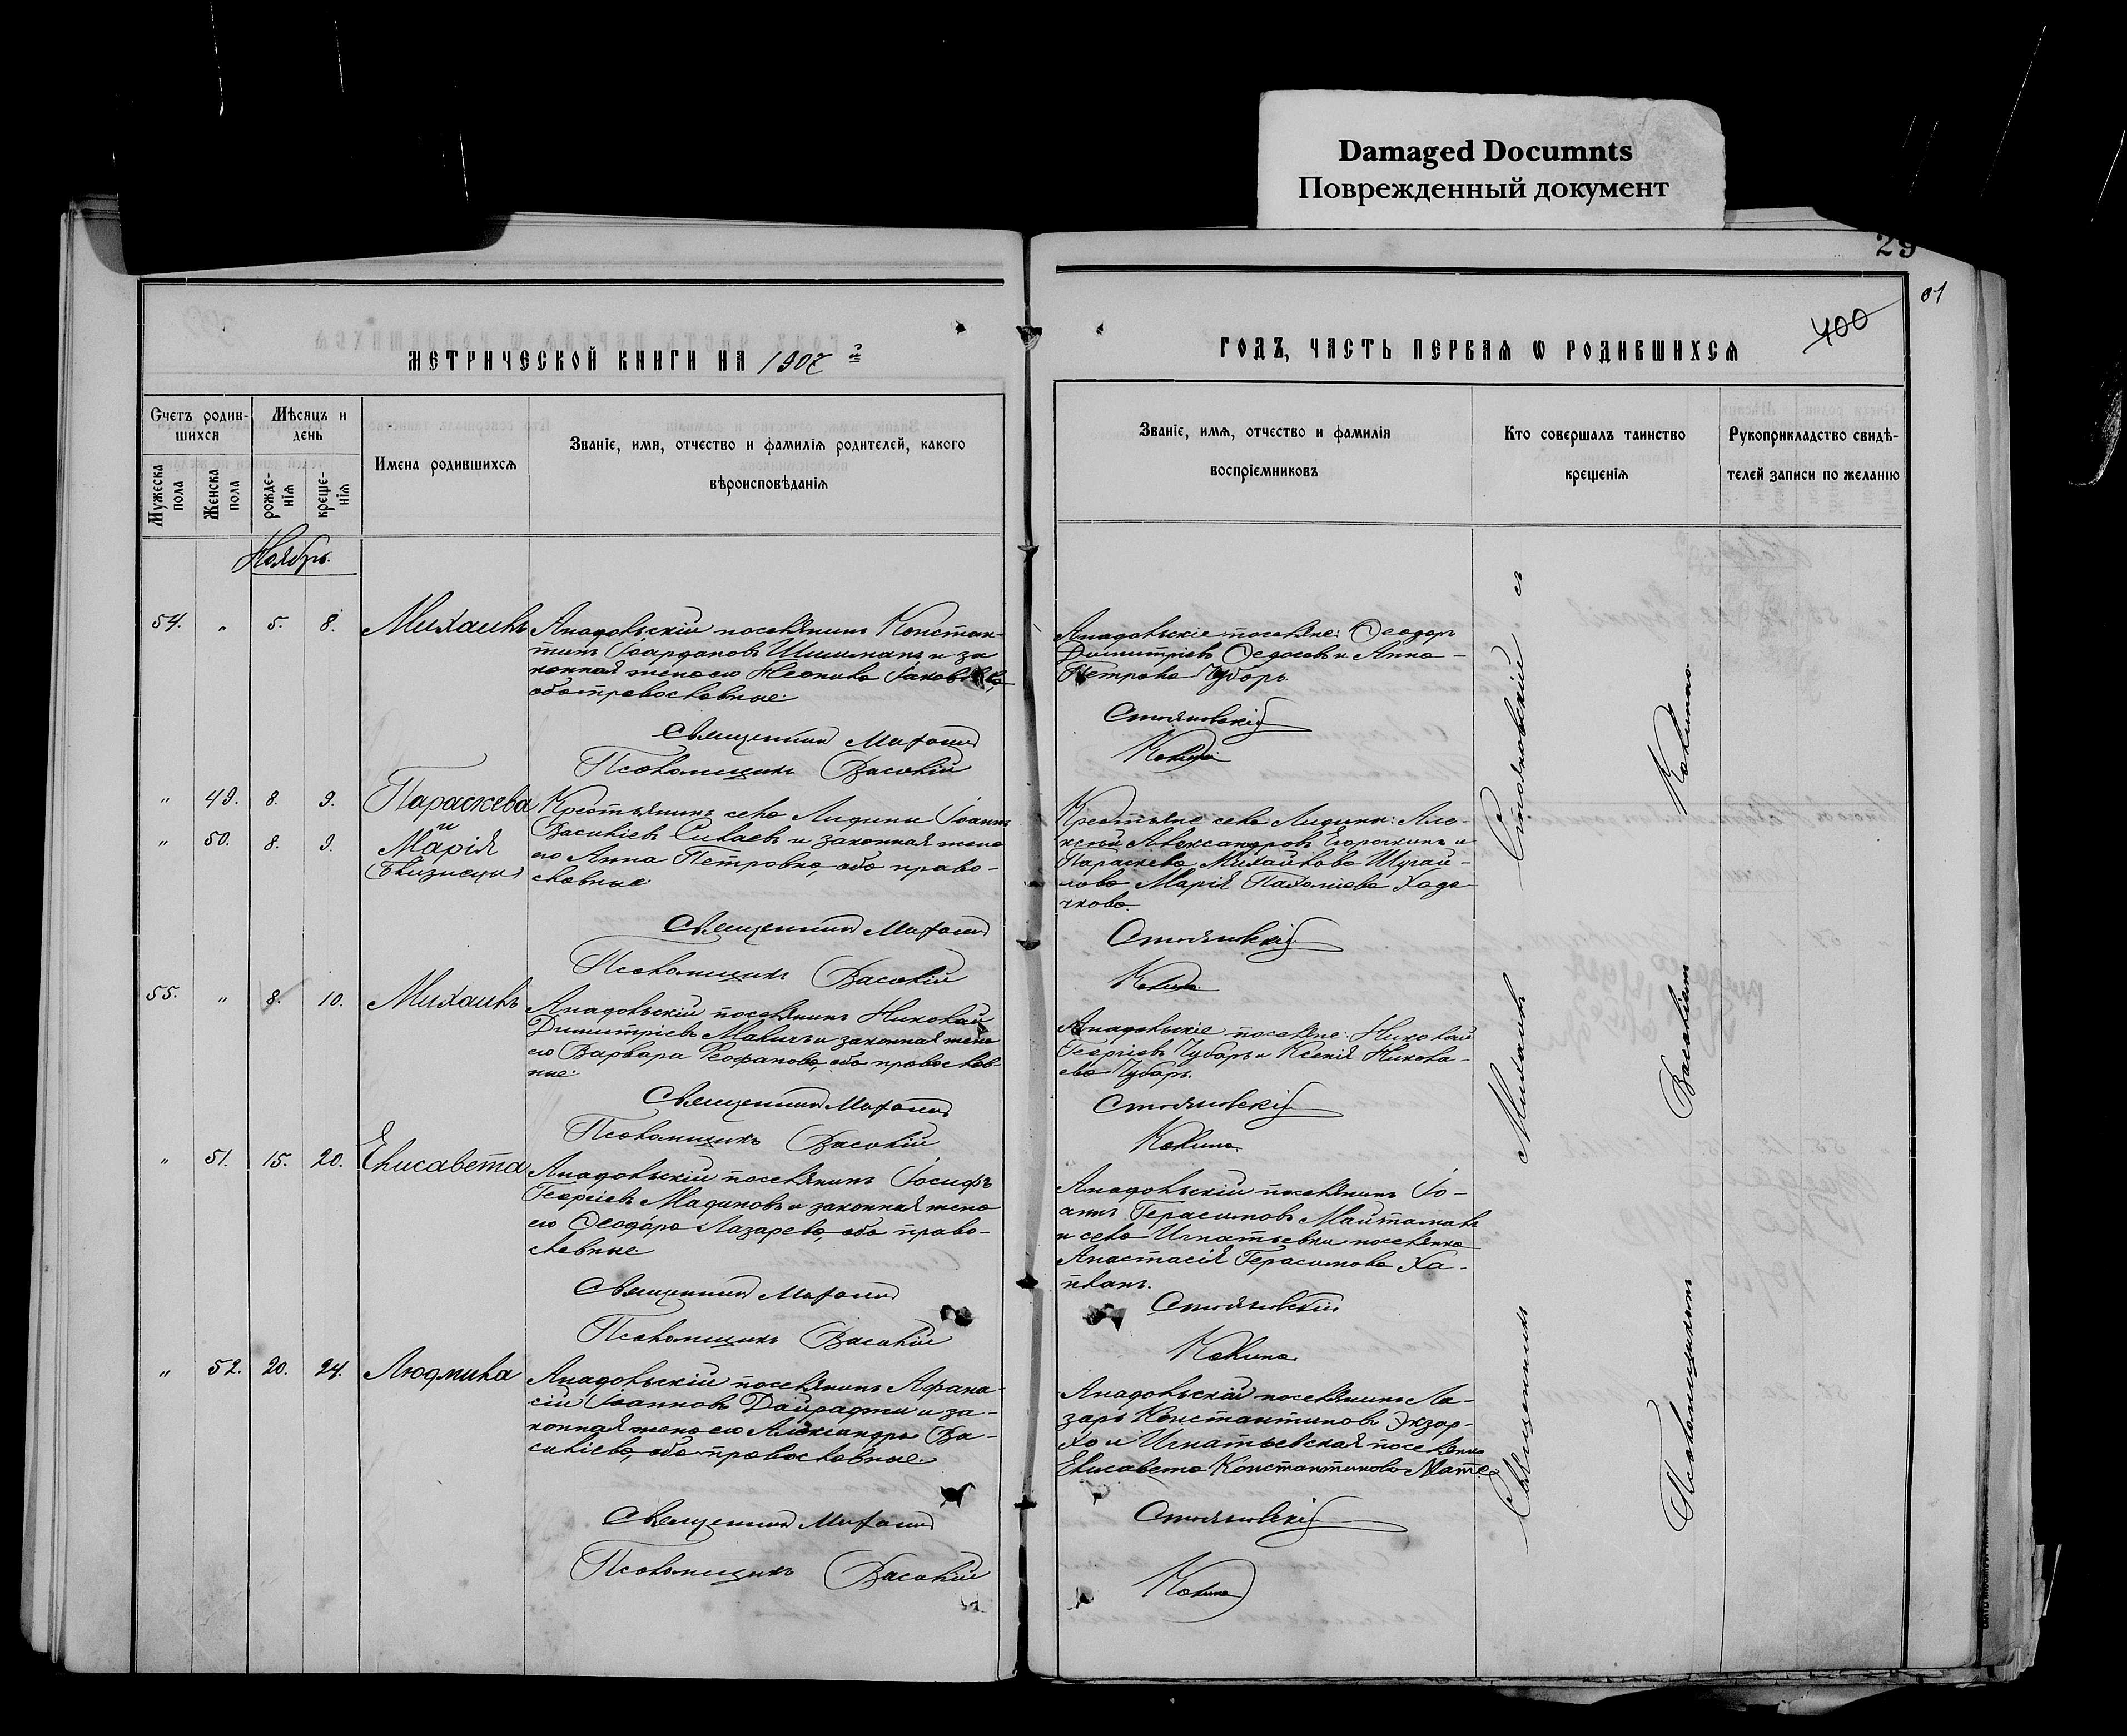 Damaged Documnts
Поврежденный документ
29
01
400
МЕТРИЧЕСКОЙ КНИГИ НА 1907 й
ГОДЪ, ЧАСТЬ ПЕРВАЯ Ѡ РОДИВШИХСЯ
Счетъ родив-
шихся
Мужеска пола
Женска пола
Мѣсяцъ и
день
рожде-
нія
креще-
нія
Имена родившихся
Званіе, имя, отчество и фамилія родителей, какого
вѣроисповѣданія
Званіе, имя, отчество и фамилія
воспріемниковъ
Кто совершалъ таинство
крещенія
Рукоприкладство свидѣ-
телей записи по желанію
Ноябрь.
54. " 5. 8. Михаилъ
Анадольскій поселянинъ Констан-
тинъ Іордановъ Шишманъ и за
конная жена его Неонила Іаковлева,
оба православные.
Священникъ
Псаломщикъ Василій
Анадольскіе поселяне: Ѳеодоръ
Димитріевъ Ѳедосовъ и Анна
Петрова Чубарь.
Стояновскій
Калина
" 49. 8. 9. Параскева
" 50. 8. 9. и
Марія
(близнецы)
Крестьянинъ села Лидина Іоаннъ
Василіевъ и законная жена
его Анна Петровна, оба право-
славные.
Священникъ
Псаломщикъ Василій
Крестьяне села Лидина: Але-
ксѣй Александровъ и
Параскева Михайлова
Марія Пахоміева Хода-
чкова.
Стояновскій
Калина
55. " 8. 10. Михаилъ
Анадольскій поселянинъ Николай
Димитріевъ и законная жена
его Варвара Ѳеофанова, оба православ-
ные.
Священникъ
Псаломщикъ Василій
Анадольскіе поселяне: Николай
Георгіевъ Чубарь и Ксенія Никола-
ева Чубарь.
Стояновскій
Калина
" 51. 15. 20. Елисавета
Анадольскій поселянинъ Іосифъ
Георгіевъ Мадиновъ и законная жена
его Ѳеодора Лазарева, оба право-
славные
Священникъ
Псаломщикъ Василій
Анадольскій поселянинъ Іо-
аннъ Герасимовъ Майтаманъ
и села Игнатьевки поселянка
Анастасія Герасимова Ха-
планъ.
Стояновскій
Калина
" 52. 20. 24. Людмила
Анадольскій поселянинъ Афана-
сій Іоанновъ Дайраджи и за-
конная жена его Александра Ва-
силіева, оба православные.
Священникъ
Псаломщикъ Василій
Анадольскій поселянинъ Ла-
зарь Константиновъ Экзар-
хо и Игнатьевская поселянка
Елисавета Константинова
Стояновскій
Калина
Священникъ Михаилъ Стояновскій съ
Псаломщикомъ Василіемъ Калиною.